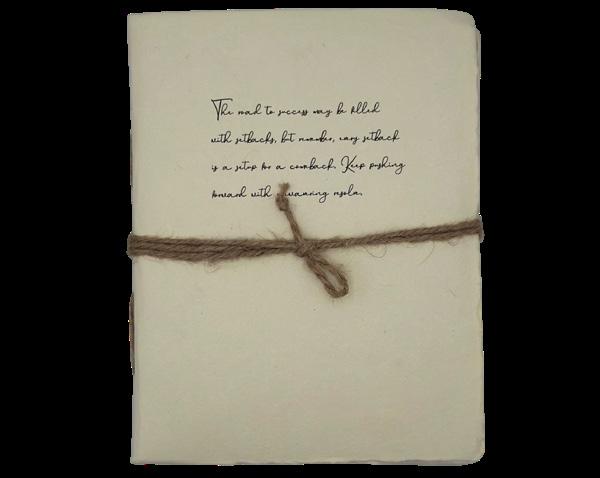 The road to success may be filled
with setbacks, but remember, every setback
is a setup for a comeback. Keep pushing
forward with unwavering resolve.